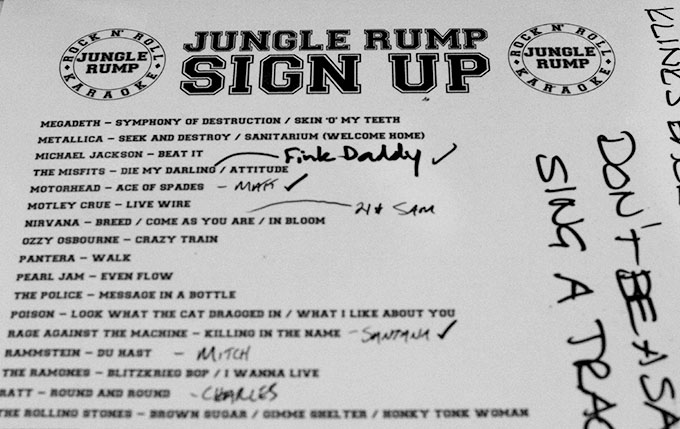 ROCK N' ROLL
JUNGLE RUMP
KARAOKE
JUNGLE RUMP
SIGN UP
ROCK N' ROLL
JUNGLE RUMP
KARAOKE
MEGADETH – SYMPHONY OF DESTRUCTION / SKIN 'O' MY TEETH
METALLICA – SEEK AND DESTROY / SANITARIUM (WELCOME HOME)
MICHAEL JACKSON – BEAT IT Fink Daddy ✓
THE MISFITS – DIE MY DARLING / ATTITUDE
MOTORHEAD – ACE OF SPADES – MATT ✓
MOTLEY CRUE – LIVE WIRE SAM
NIRVANA – BREED / COME AS YOU ARE / IN BLOOM
OZZY OSBOURNE – CRAZY TRAIN
PANTERA – WALK
PEARL JAM – EVEN FLOW
THE POLICE – MESSAGE IN A BOTTLE
POISON – LOOK WHAT THE CAT DRAGGED IN / WHAT I LIKE ABOUT YOU
RAGE AGAINST THE MACHINE – KILLING IN THE NAME – SANTANA ✓
RAMMSTEIN – DU HAST – MITCH
THE RAMONES – BLITZKRIEG BOP / I WANNA LIVE
RATT – ROUND AND ROUND – CHARLES
THE ROLLING STONES – BROWN SUGAR / GIMME SHELTER / HONKY TONK WOMAN
DON'T BE A SA
SING A TRAC